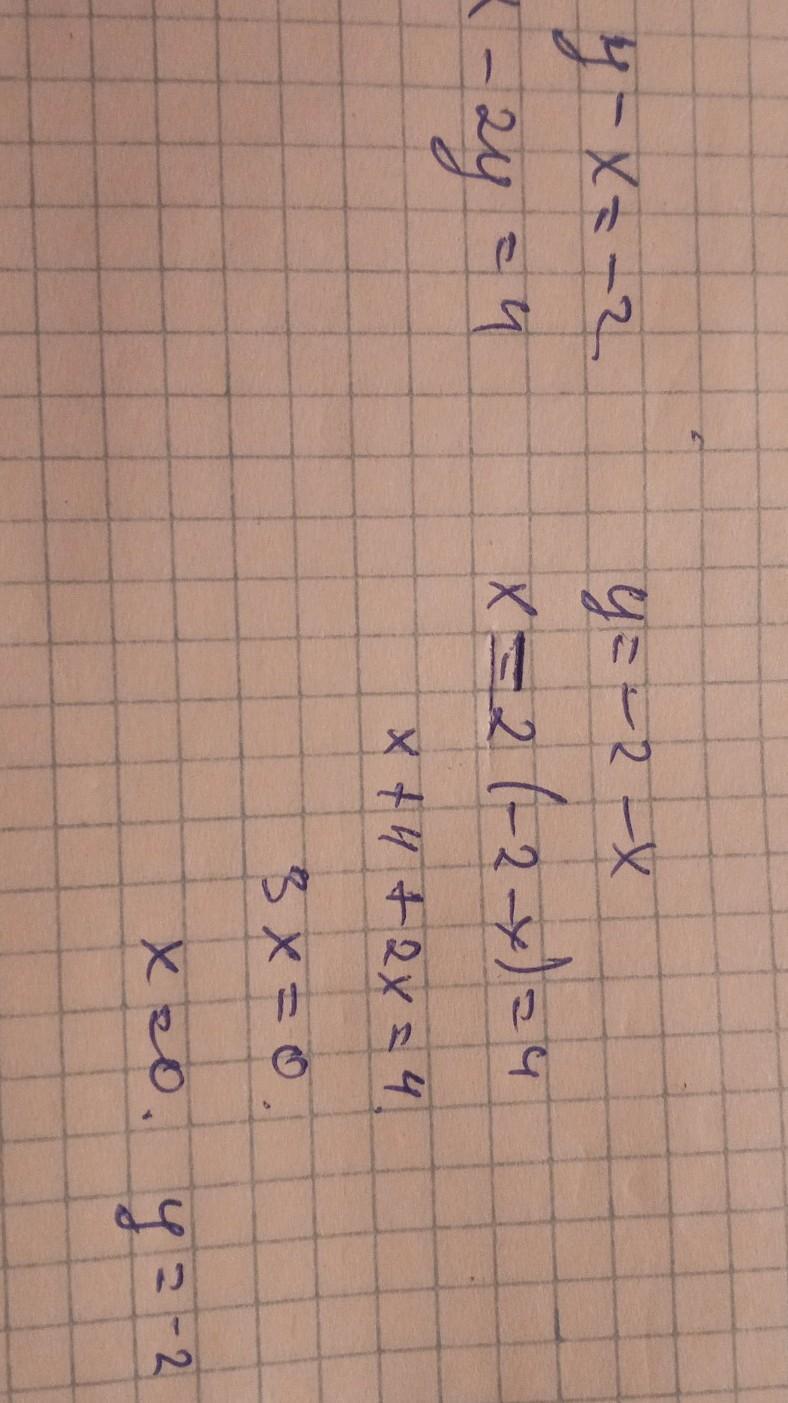 y - x = -2
x - 2y = 4
y = -2 - x
x - 2 (-2 - x) = 4
x + 4 + 2x = 4.
3x = 0.
x = 0. y = -2